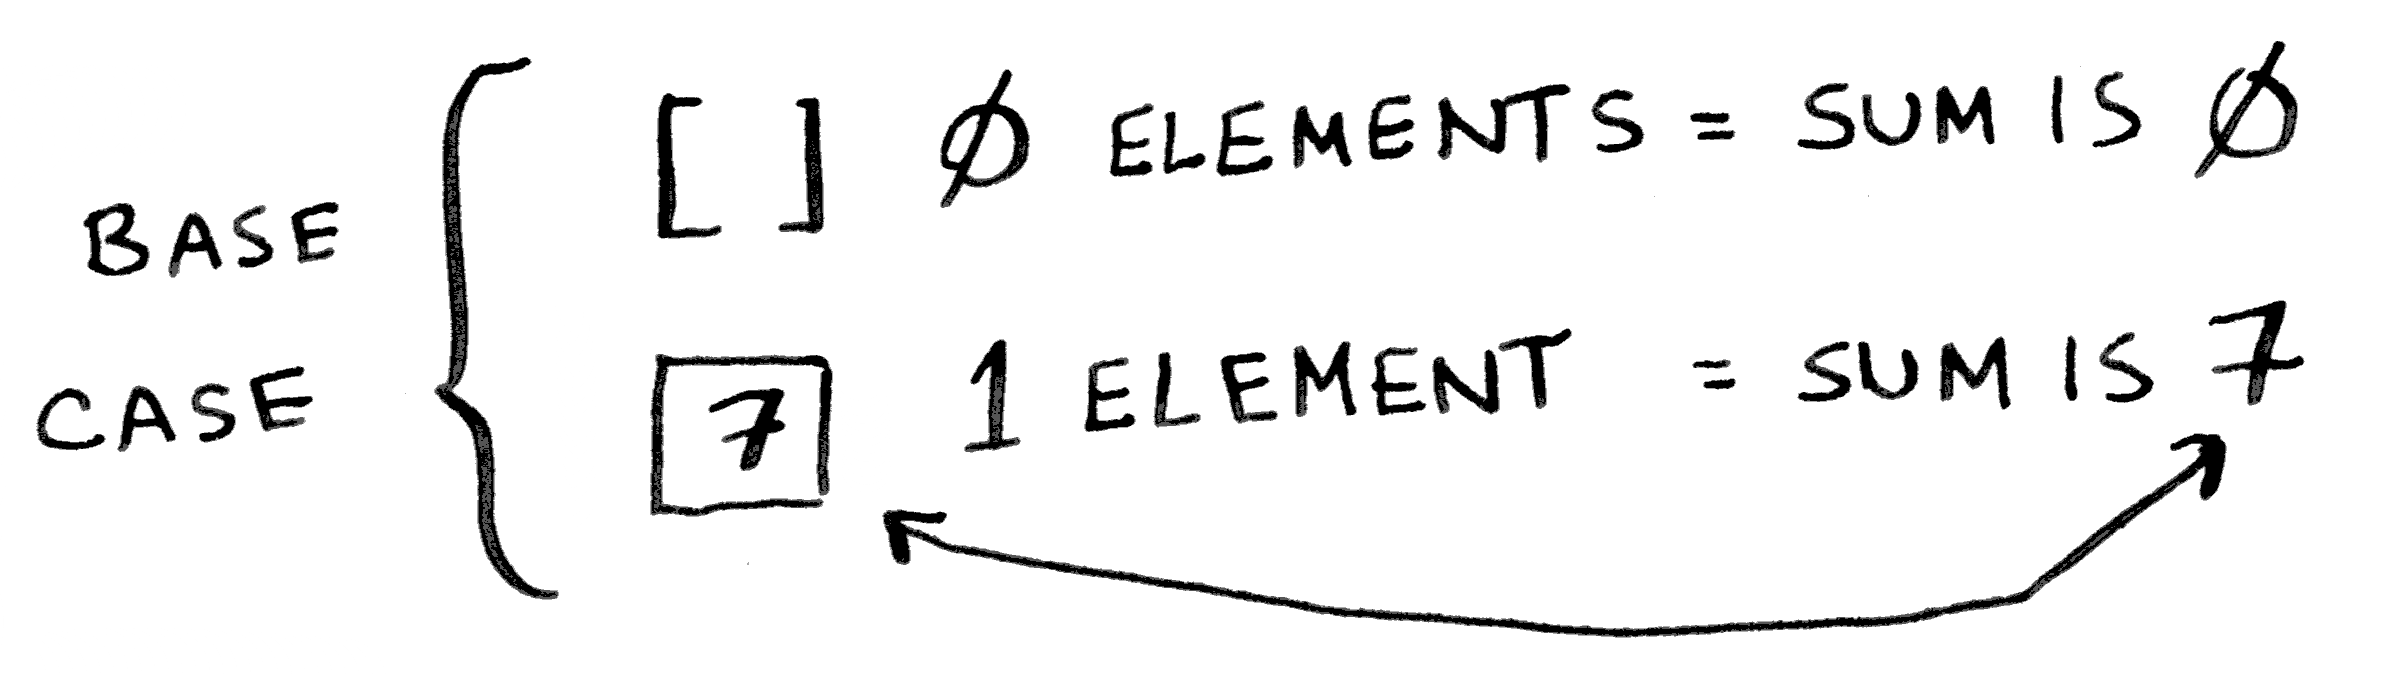 BASE
CASE
[ ] Ø ELEMENTS = SUM IS Ø
7 1 ELEMENT = SUM IS 7